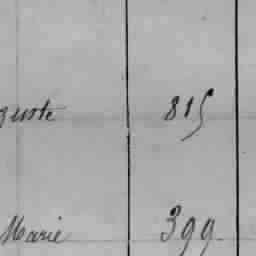 guste 815
Marie 399